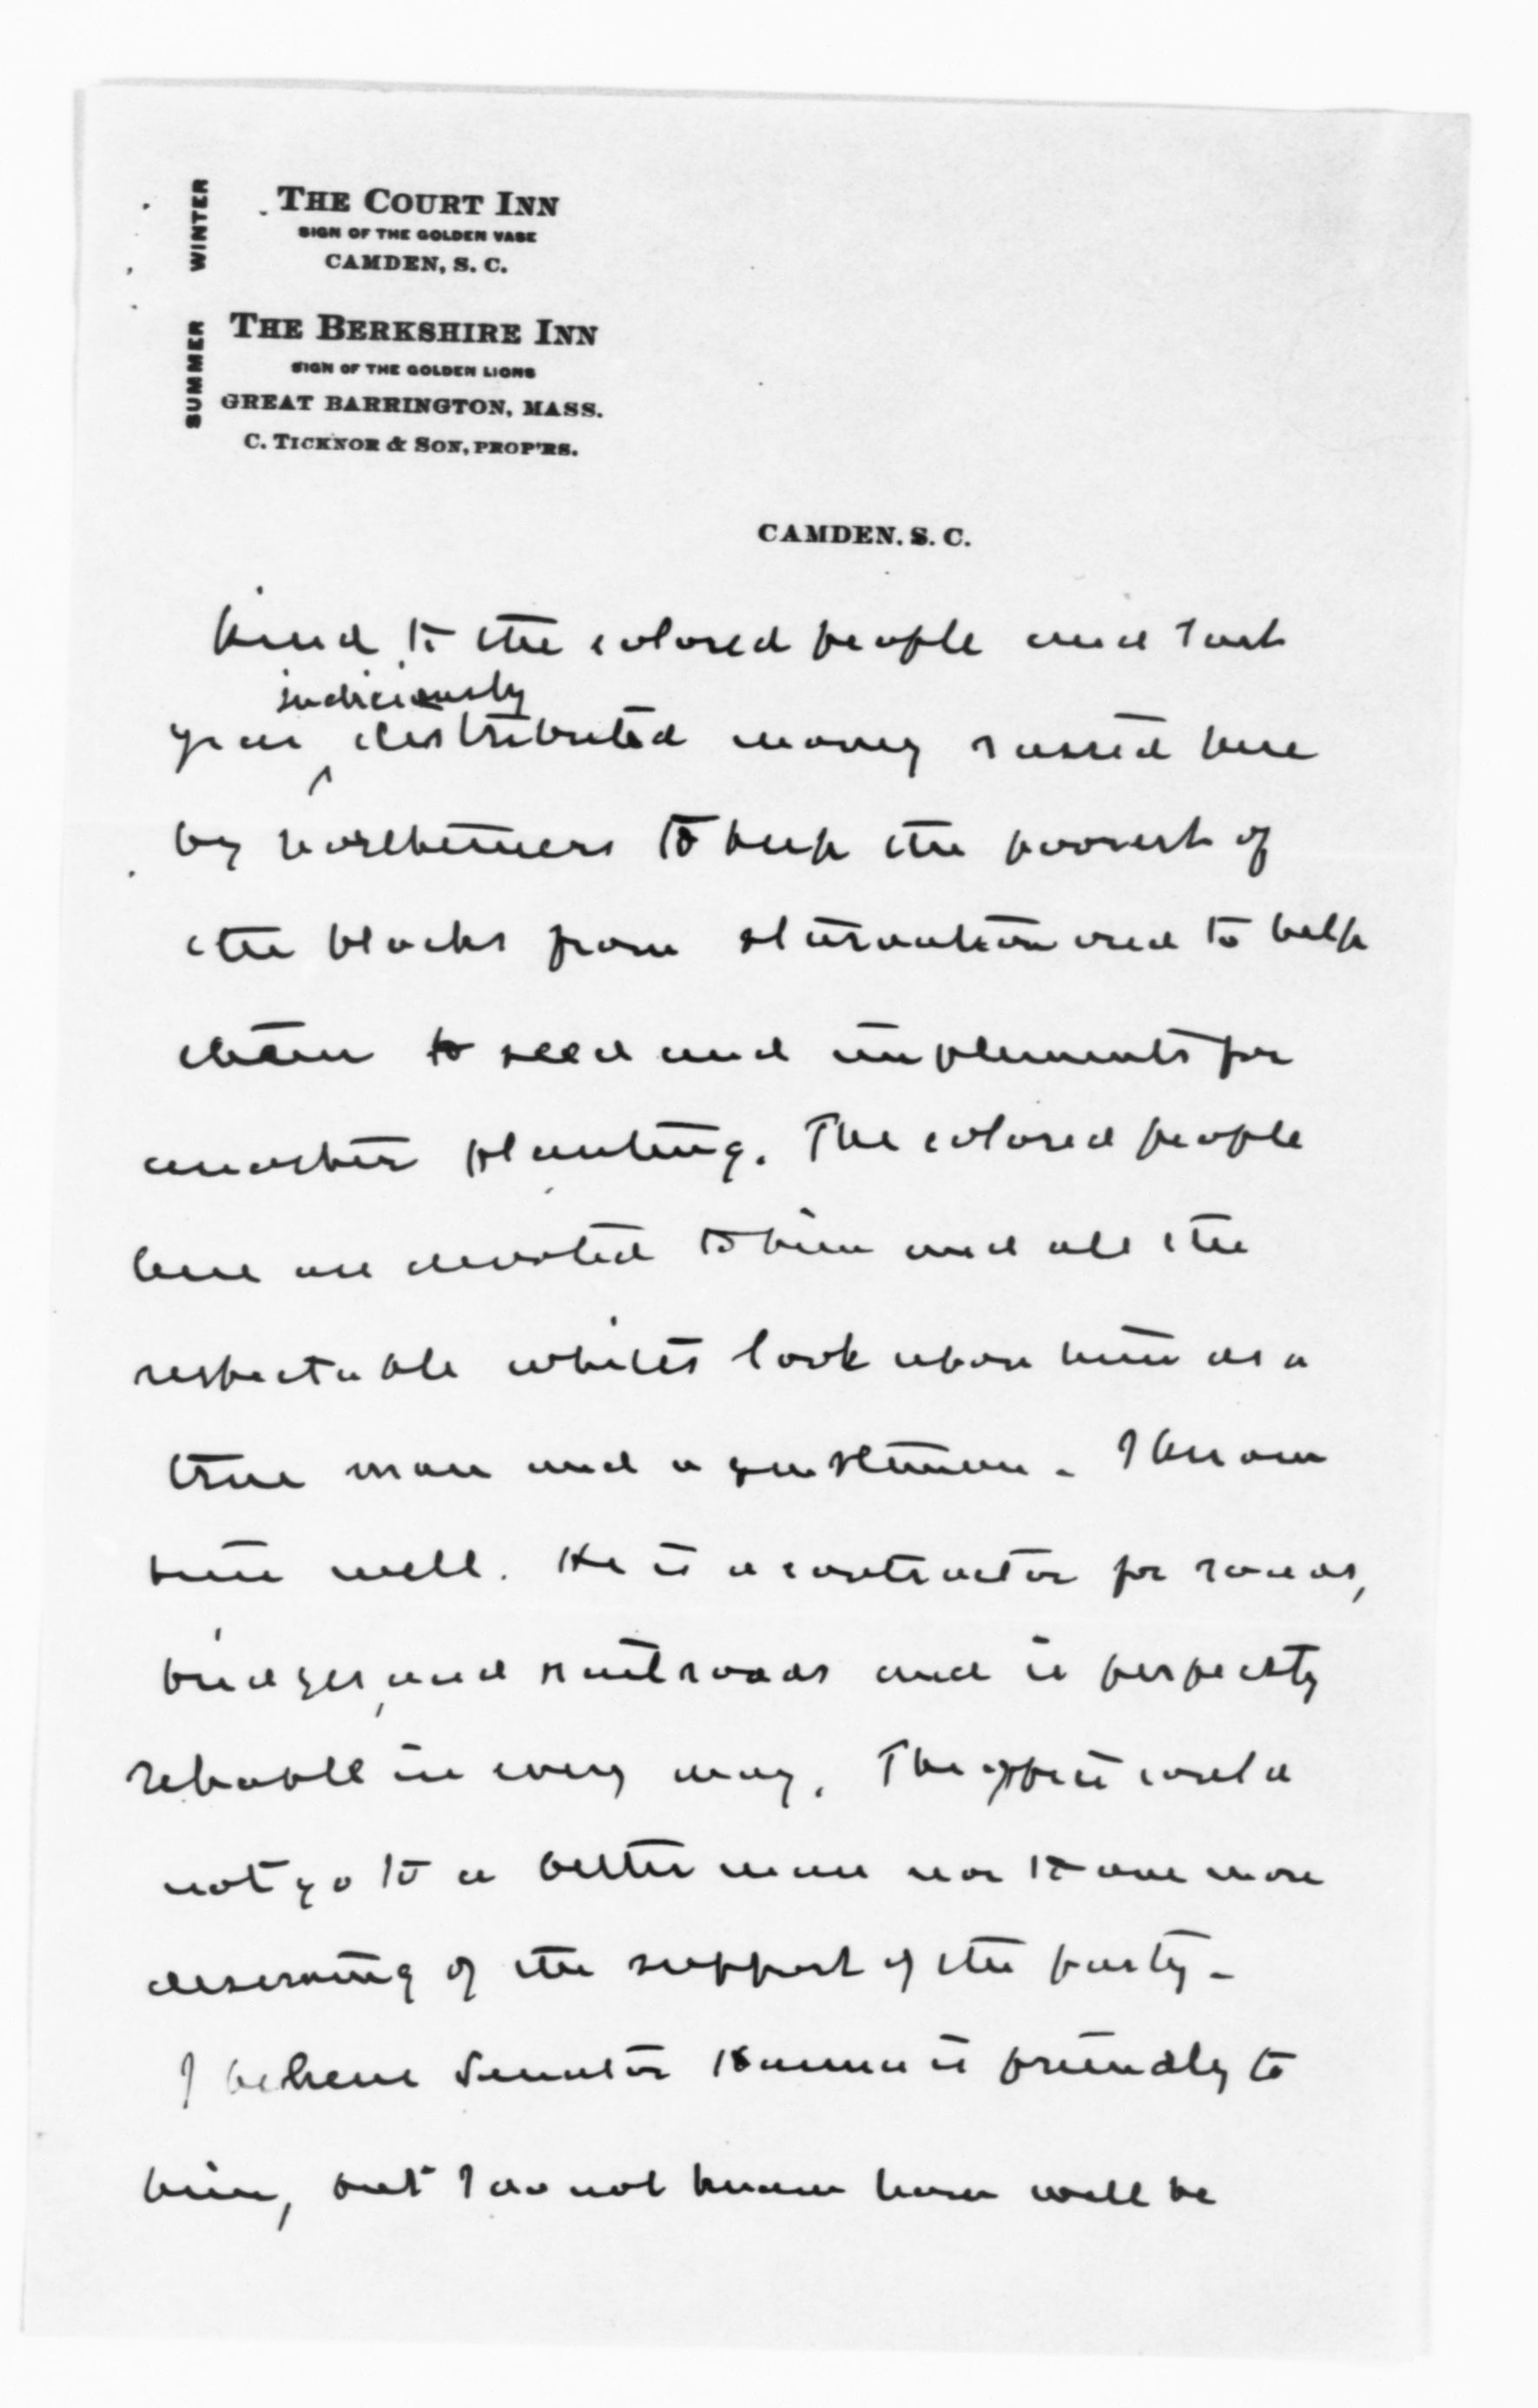 WINTER
THE COURT INN
SIGN OF THE GOLDEN VASE
CAMDEN, S. C.
SUMMER
THE BERKSHIRE INN
SIGN OF THE GOLDEN LIONS
GREAT BARRINGTON, MASS.
C. TICKNOR & SON, PROP'RS.
CAMDEN, S. C.
kind to the colored people and last
judiciously
year ^ distributed money raised here
by northerners to keep the poorest of
the blacks from starvation and to help
them to seed and implements for
another planting. The colored people
here are devoted to him and all the
respectable whites look upon him as a
true man and a gentleman. I know
him well. He is a contractor for roads,
bridges, and railroads and is perfectly
reliable in every way. The office could
not go to a better man nor to one more
deserving of the support of the party.
I believe Senator Hanna is friendly to
him, but I do not know how well he